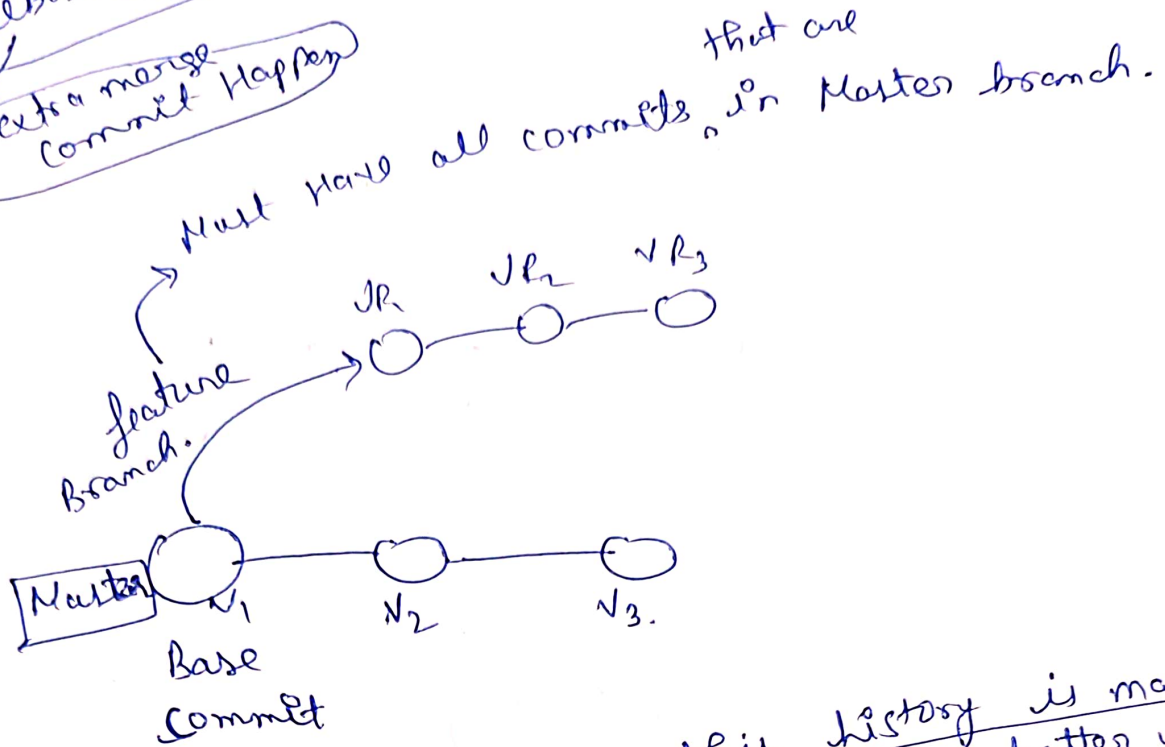 extra merge
commit Happen
that are
Must Have all commits, in Master branch.
VR1 VR2 VR3
feature
Branch.
Master
V1 V2 V3.
Base
commit
history is